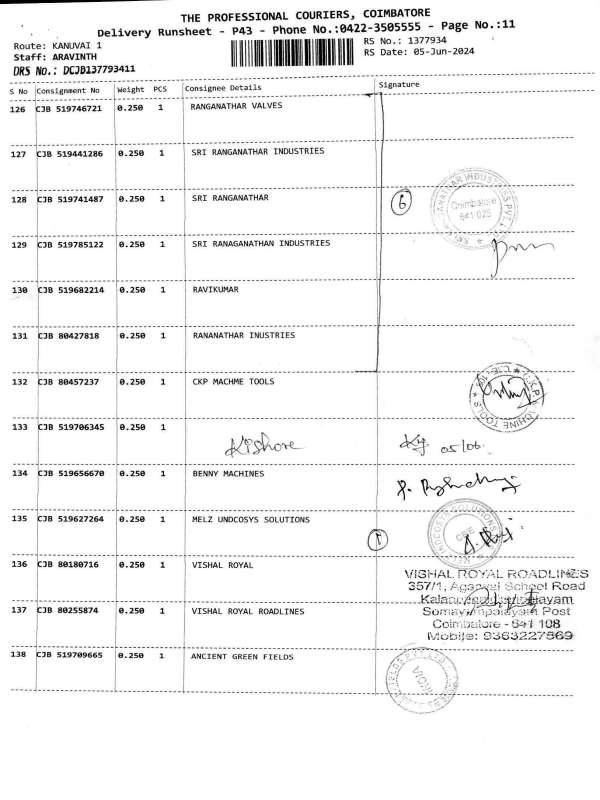 THE PROFESSIONAL COURIERS, COIMBATORE
Delivery Runsheet - P43 - Phone No.:0422-3505555 - Page No.:11
Route: KANUVAI 1
RS No.: 1377934
Staff: ARAVINTH
RS Date: 05-Jun-2024
DRS No.: DCJB137793411
S No Consignment No Weight PCS Consignee Details Signature
126 CJB 519746721 0.250 1 RANGANATHAR VALVES
127 CJB 519441286 0.250 1 SRI RANGANATHAR INDUSTRIES
128 CJB 519741487 0.250 1 SRI RANGANATHAR
6
Coimbatore
641 025
129 CJB 519785122 0.250 1 SRI RANAGANATHAN INDUSTRIES
130 CJB 519682214 0.250 1 RAVIKUMAR
131 CJB 80427818 0.250 1 RANANATHAR INUSTRIES
132 CJB 80457237 0.250 1 CKP MACHME TOOLS
133 CJB 519706345 0.250 1
Kishore
05/06.
134 CJB 519656670 0.250 1 BENNY MACHINES
135 CJB 519627264 0.250 1 MELZ UNDCOSYS SOLUTIONS
136 CJB 80180716 0.250 1 VISHAL ROYAL
VISHAL ROYAL ROADLINES
357/1, Agarwal School Road
137 CJB 80255874 0.250 1 VISHAL ROYAL ROADLINES
Post
Coimbatore - 641 108
Mobile: 9363227569
138 CJB 519709665 0.250 1 ANCIENT GREEN FIELDS